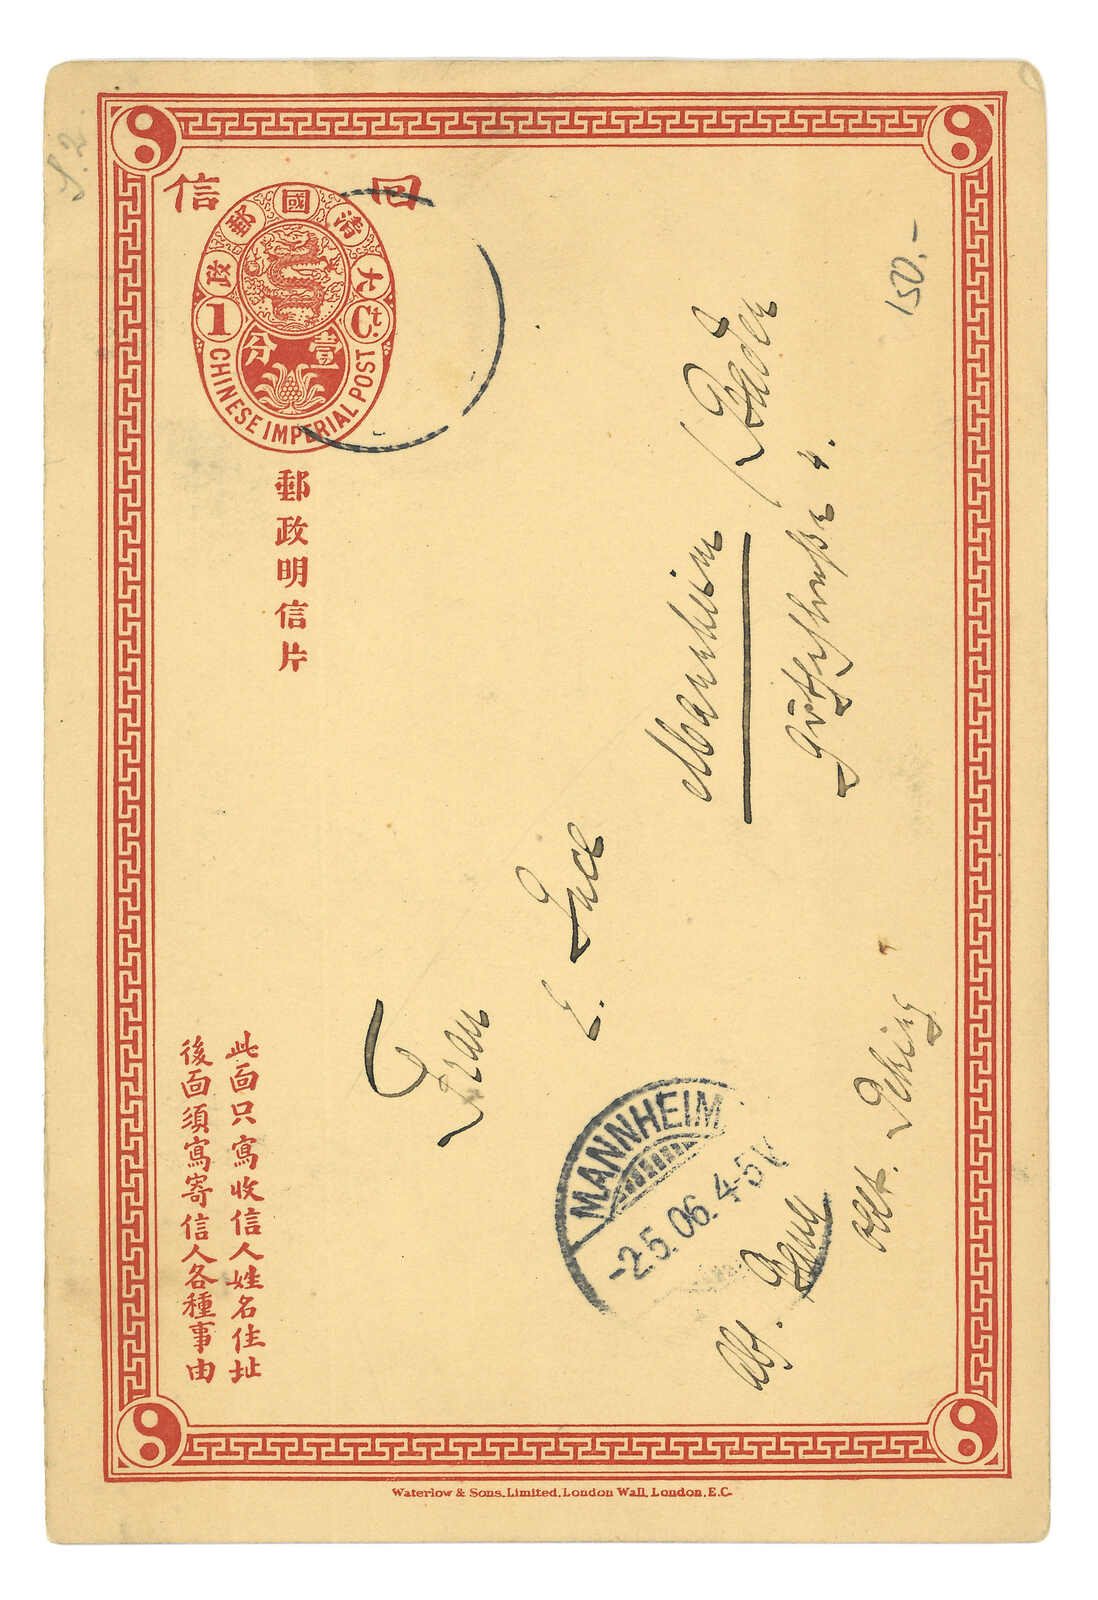 S. 2
回 信
大清國郵政
1 Ct.
壹分
CHINESE IMPERIAL POST
郵政明信片
此面只寫收信人姓名住址
後面須寫寄信人各種事由
150.-
Frau
Mannheim / Baden
4.
MANNHEIM
-2.5.06. 4-5 V
Abs.
Peking
Waterlow & Sons, Limited, London Wall, London, E.C.